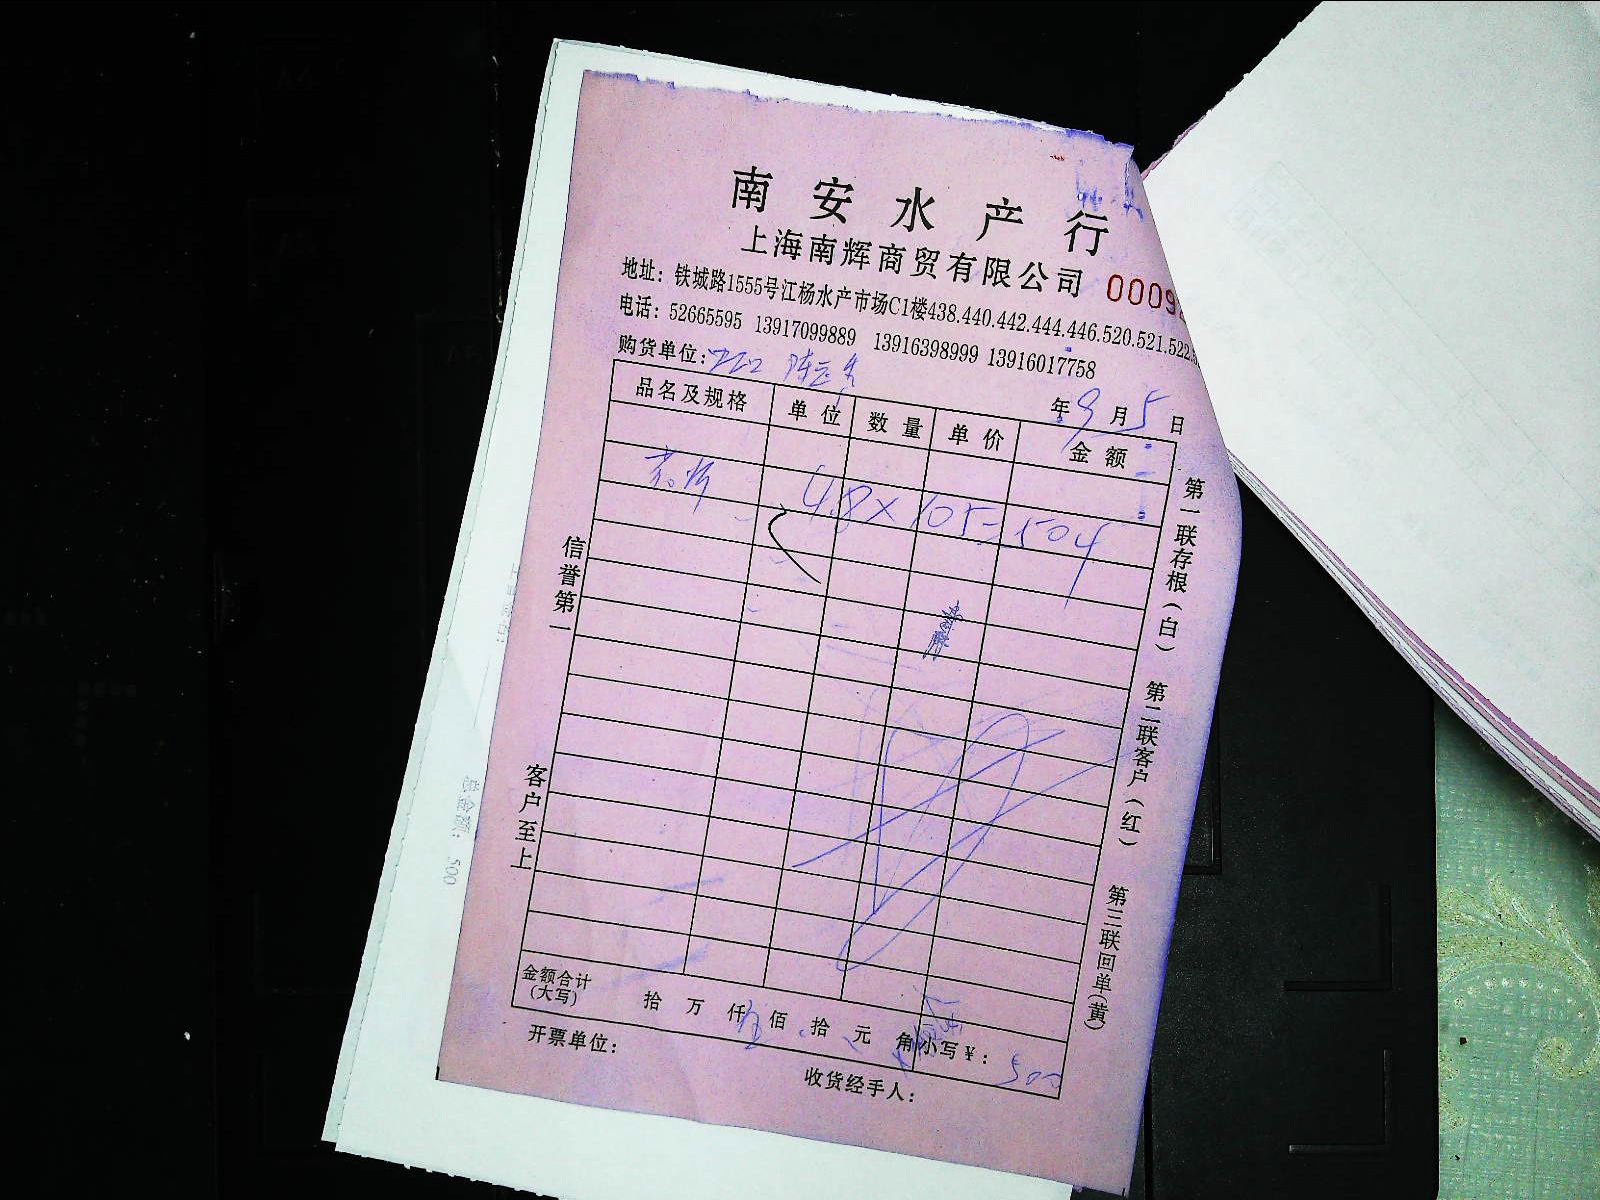 南安水产行
上海南辉商贸有限公司 0009
地址：铁城路1555号江杨水产市场C1楼438.440.442.444.446.520.521.522.
电话：52665595 13917099889 13916398999 13916017758
购货单位：
年9月5日
品名及规格 单位 数量 单价 金额
4.8×105=504
信誉第一
客户至上
第一联存根(白)
第二联客户(红)
第三联回单(黄)
金额合计(大写) 拾 万 仟 伍 佰 拾 元 角 小写￥：500
开票单位：
收货经手人：
总金额：500